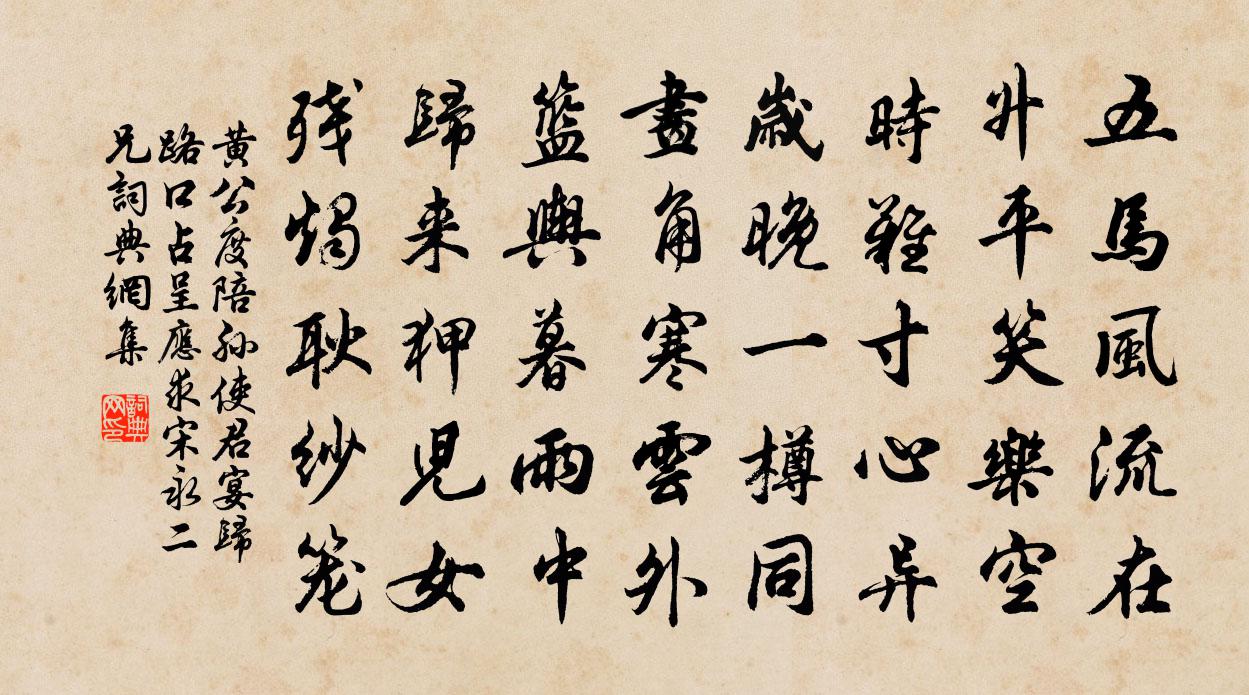 五馬風流在
升平笑樂空
時難寸心异
歲晚一樽同
畫角寒雲外
籃輿暮雨中
歸来狎兒女
残燭耿紗笼
黄公度陪孫使君宴歸
路口占呈應求宋永二
兄詞典網集
詞典网印